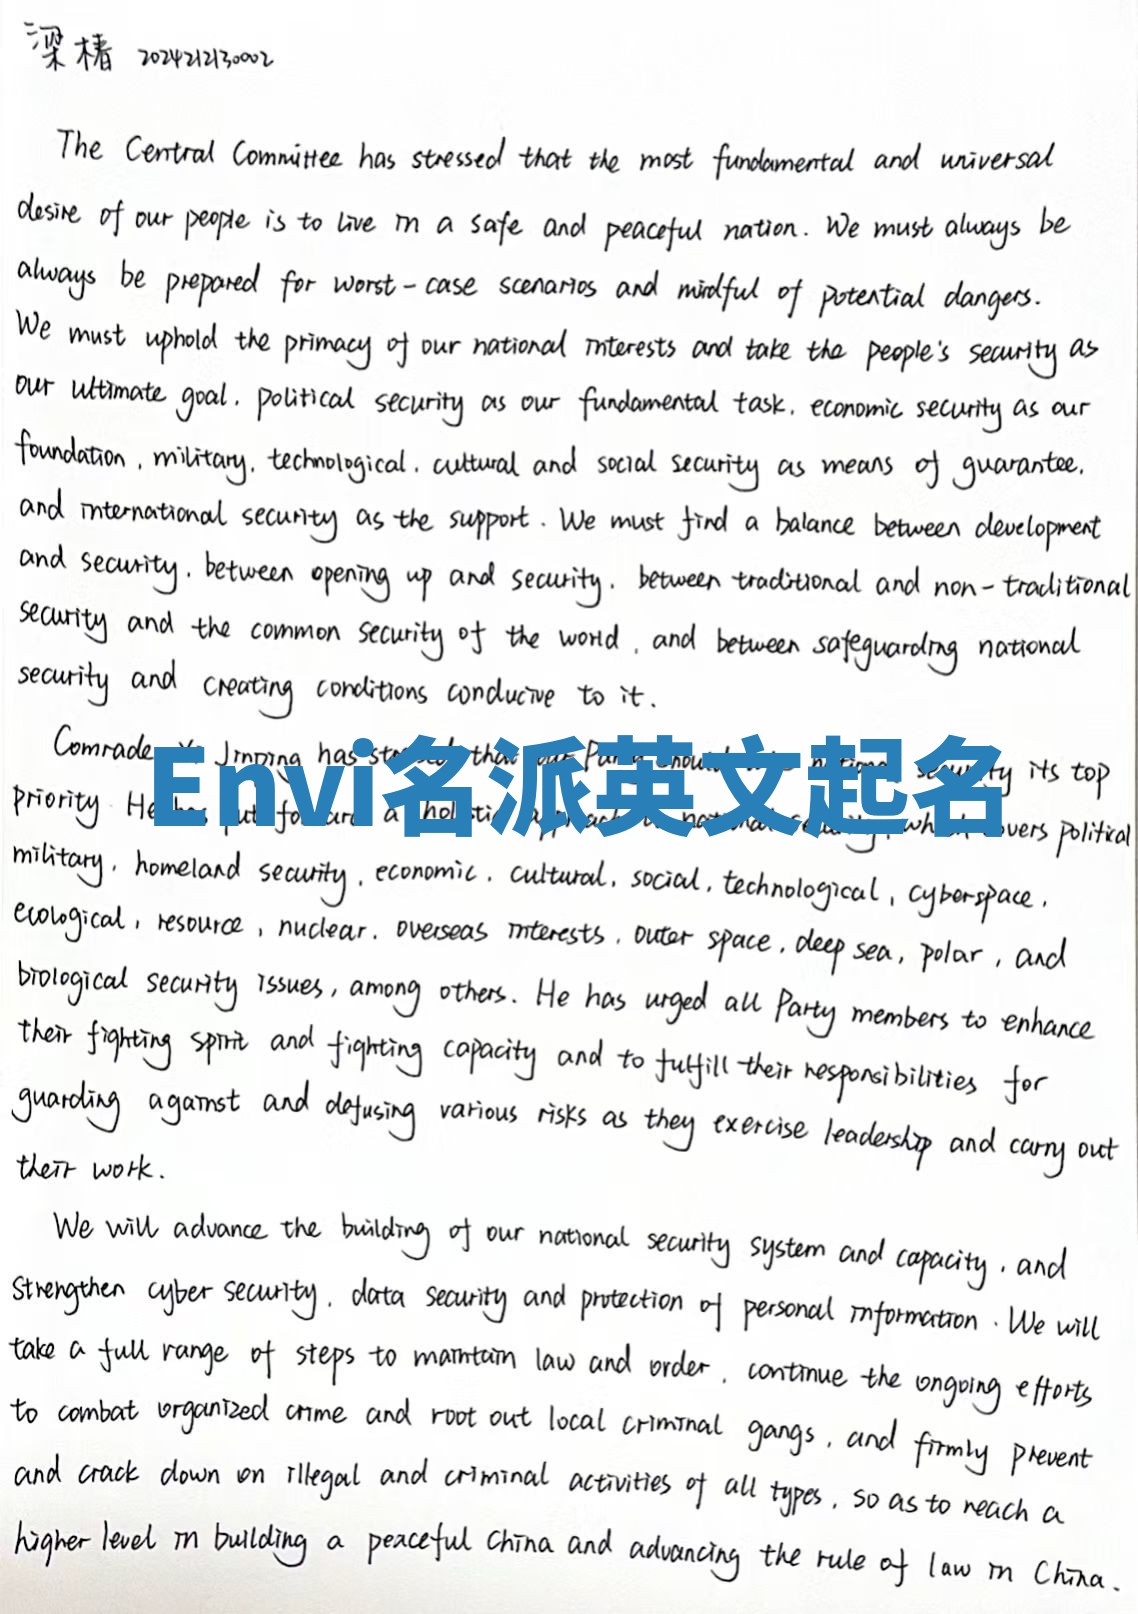 梁椿 2024212130002
The Central Committee has stressed that the most fundamental and universal
desire of our people is to live in a safe and peaceful nation. We must always be
always be prepared for worst-case scenarios and mindful of potential dangers.
We must uphold the primacy of our national interests and take the people's security as
our ultimate goal, political security as our fundamental task, economic security as our
foundation, military, technological, cultural and social security as means of guarantee,
and international security as the support. We must find a balance between development
and security, between opening up and security, between traditional and non-traditional
security and the common security of the world, and between safeguarding national
security and creating conditions conducive to it.
Comrade Jinping has that Party national security its top
Envi名派英文起名
priority He has put forward a holistic approach national security, which covers political
military, homeland security, economic, cultural, social, technological, cyberspace,
ecological, resource, nuclear, overseas interests, outer space, deep sea, polar, and
biological security issues, among others. He has urged all Party members to enhance
their fighting spirit and fighting capacity and to fulfill their responsibilities for
guarding against and defusing various risks as they exercise leadership and carry out
their work.
We will advance the building of our national security system and capacity, and
strengthen cyber security, data security and protection of personal information. We will
take a full range of steps to maintain law and order, continue the ongoing efforts
to combat organized crime and root out local criminal gangs, and firmly prevent
and crack down on illegal and criminal activities of all types, so as to reach a
higher level in building a peaceful China and advancing the rule of law in China.